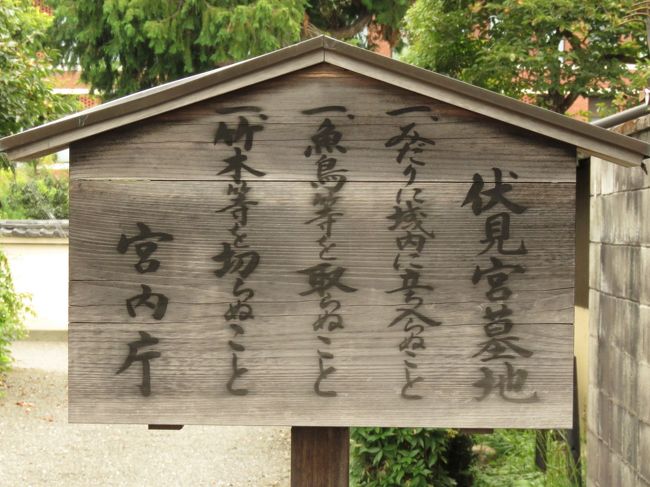 伏見宮墓地
一、みだりに域内に立ち入らぬこと
一、魚鳥等を取らぬこと
一、竹木等を切らぬこと
宮内庁